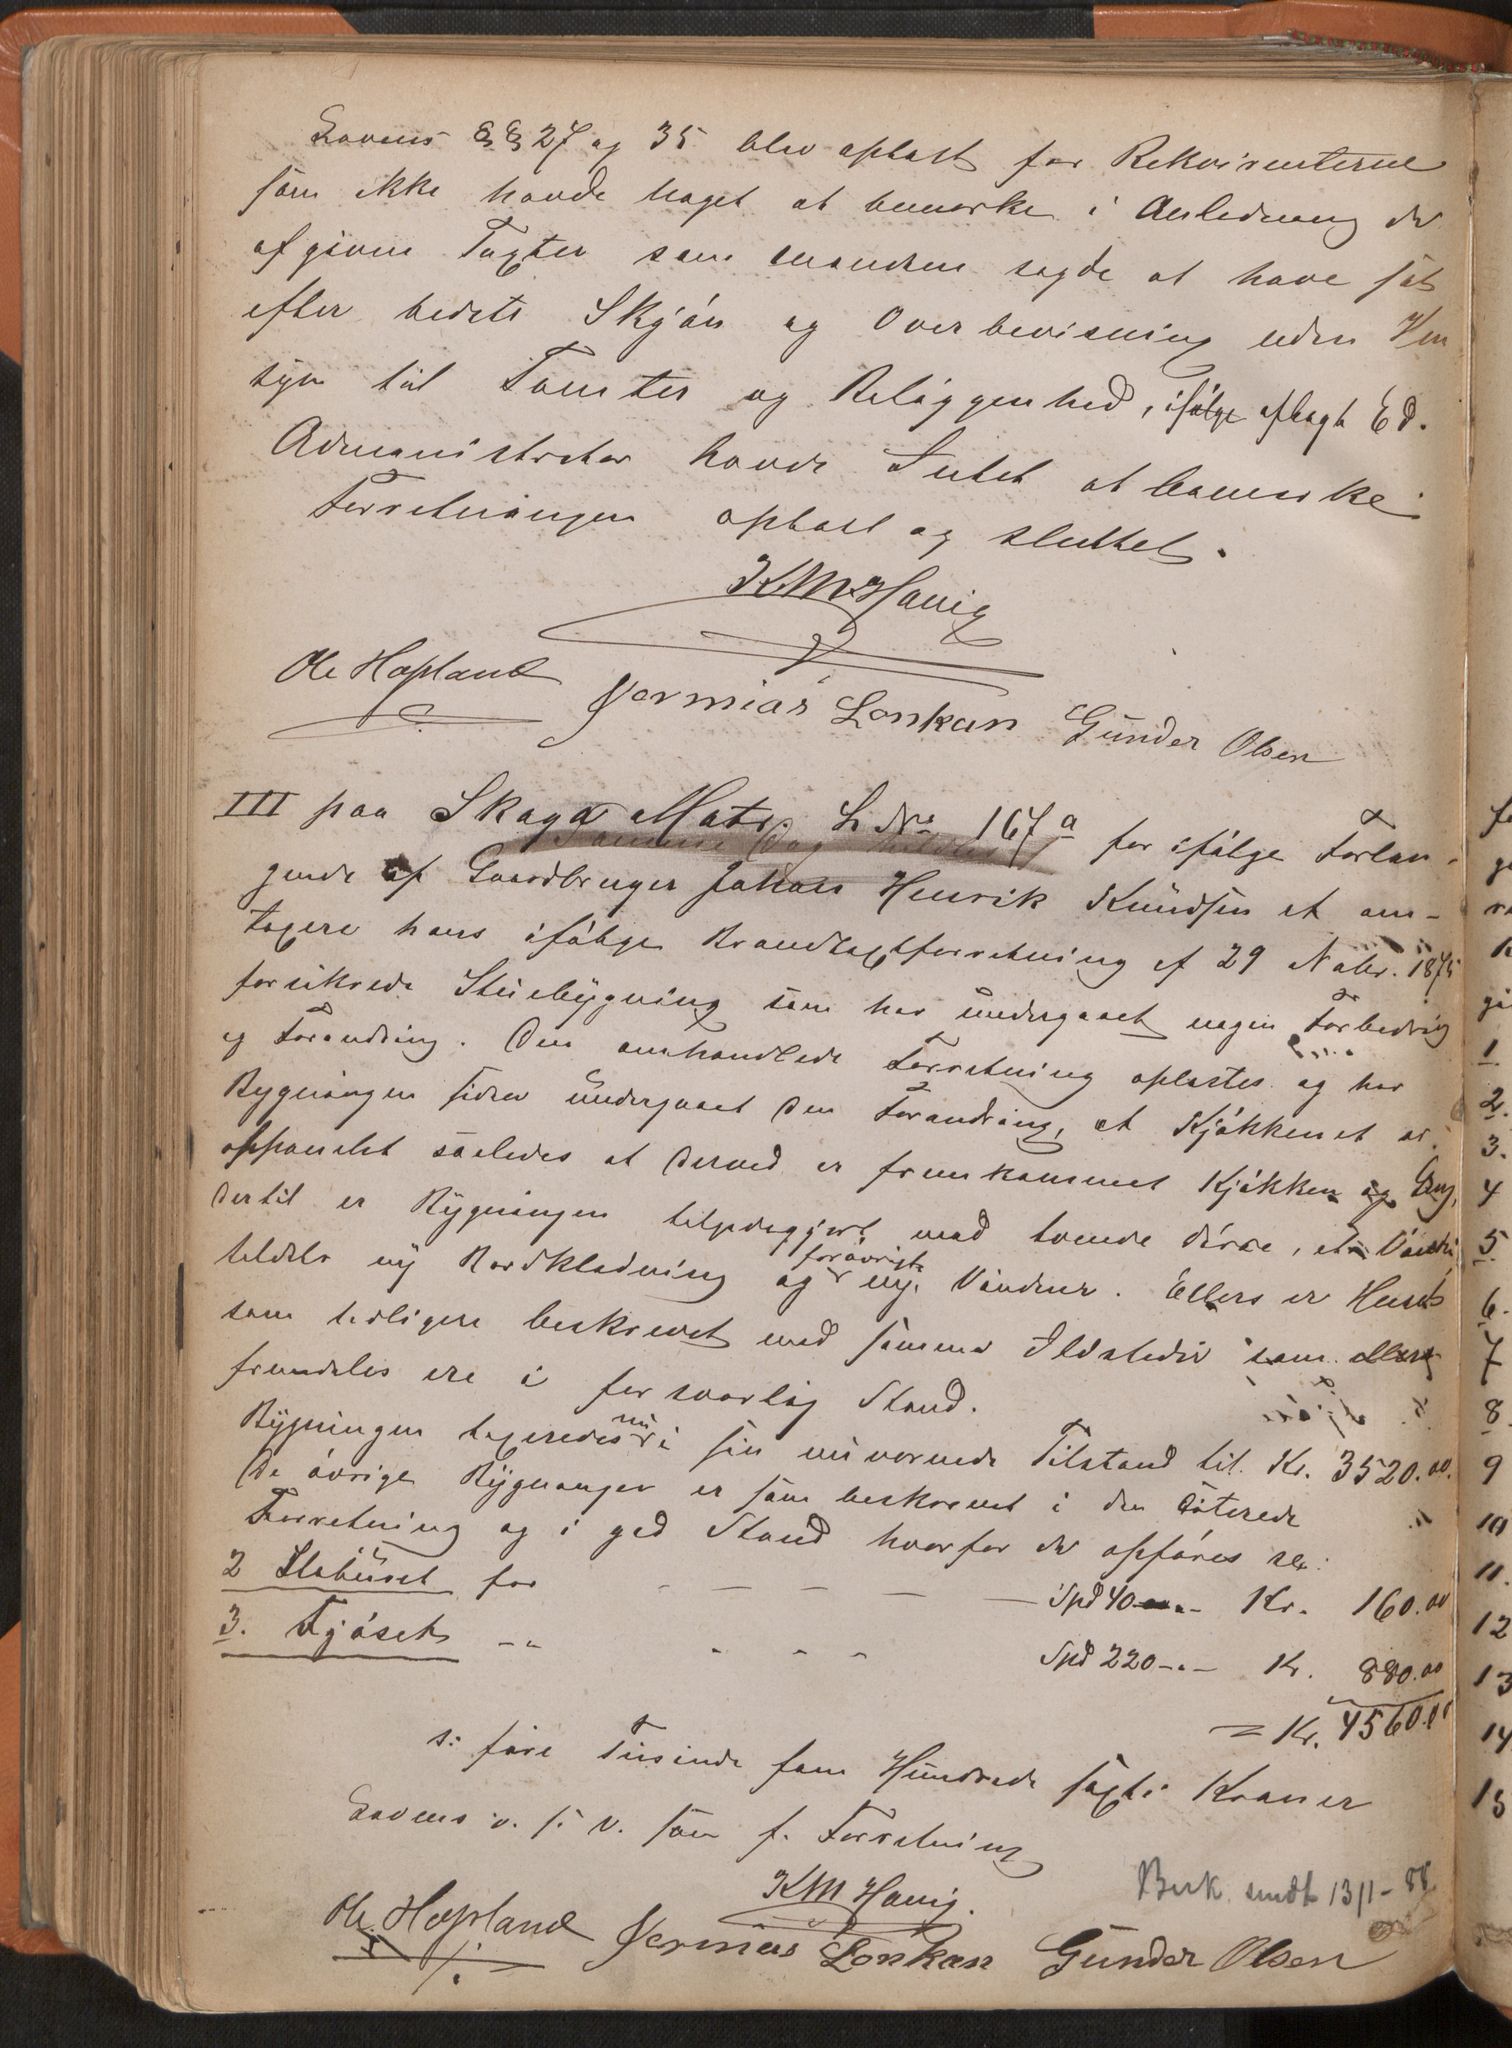 Lovens §§ 27 og 35 blev oplæst for Rekvirenterne
som ikke havde noget at bemærke i Anledning de
afgivne Taxter som Mændene sagde at have sat
efter bedste Skjøn og Overbevisning uden Hen
syn til Tomter og Beliggenhed, ifølge aflagt Ed.
Administrator havde Intet at bemærke
Forretningen oplæst og sluttet.
KM Havig
Ole Hopland Jermias Lonkan Gunder Olsen
III paa Skaga Matr. L No 167a for ifølge Forlan-
gende af Gaardbruger Johan Henrik Knudsen at om-
taxere hans ifølge Brandtaxtforretning af 29 Novbr. 1875
forsikrede Stuebygning som har undergaaet nogen Forbedring
og Forandring. Den omhandlede Forretning oplæstes og har
Bygningen siden undergaaet den Forandring, at Kjøkkenet er
oppanelet saaledes at derved er fremkommet Kjøkken og Gang,
dertil er Bygningen med tvende Døre,
tildels ny Bordklædning og forøvrigt nye Vinduer. Ellers er Huset
som tidligere beskrevet med samme Ildsteder som
fremdeles ere i forsvarlig Stand.
Bygningen taxeredes nu i sin nuværende Tilstand til Kr. 3520.00.
De øvrige Bygninger er som beskrevet i den citerede
Forretning og i god Stand hvorfor de opføres
2 Stabuset for — — — — Spd 40 — Kr. 160.00
3. Fjøset -"- - - - Spd 220 -"- Kr. 880.00
= Kr. 4560.00
s: fire Tusinde fem Hundrede sexti Kroner
Lovens v. s. v. som f. Forretning
KM Havig.
Besk. sendt 13/1-88.
Ole Hopland Jermias Lonkan Gunder Olsen
1.
2.
3.
4
5.
6.
7
8.
9
10
11.
12
13
14
15